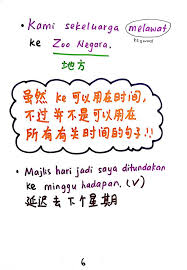 • Kami sekeluarga melawat
ke Zoo Negara.
地方
虽然 ke 可以用在时间,
不过并不是可以用在
所有有关时间的句子!!
• Majlis hari jadi saya ditundakan
ke minggu hadapan. (√)
延迟去下个星期
6